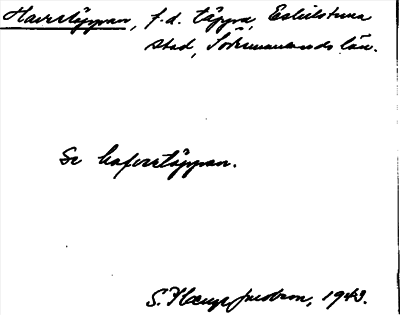 Havretäppan, f.d. täppa, Eskilstuna
stad, Södermanlands län.
Se Hafvertäppan.
S. 1943.